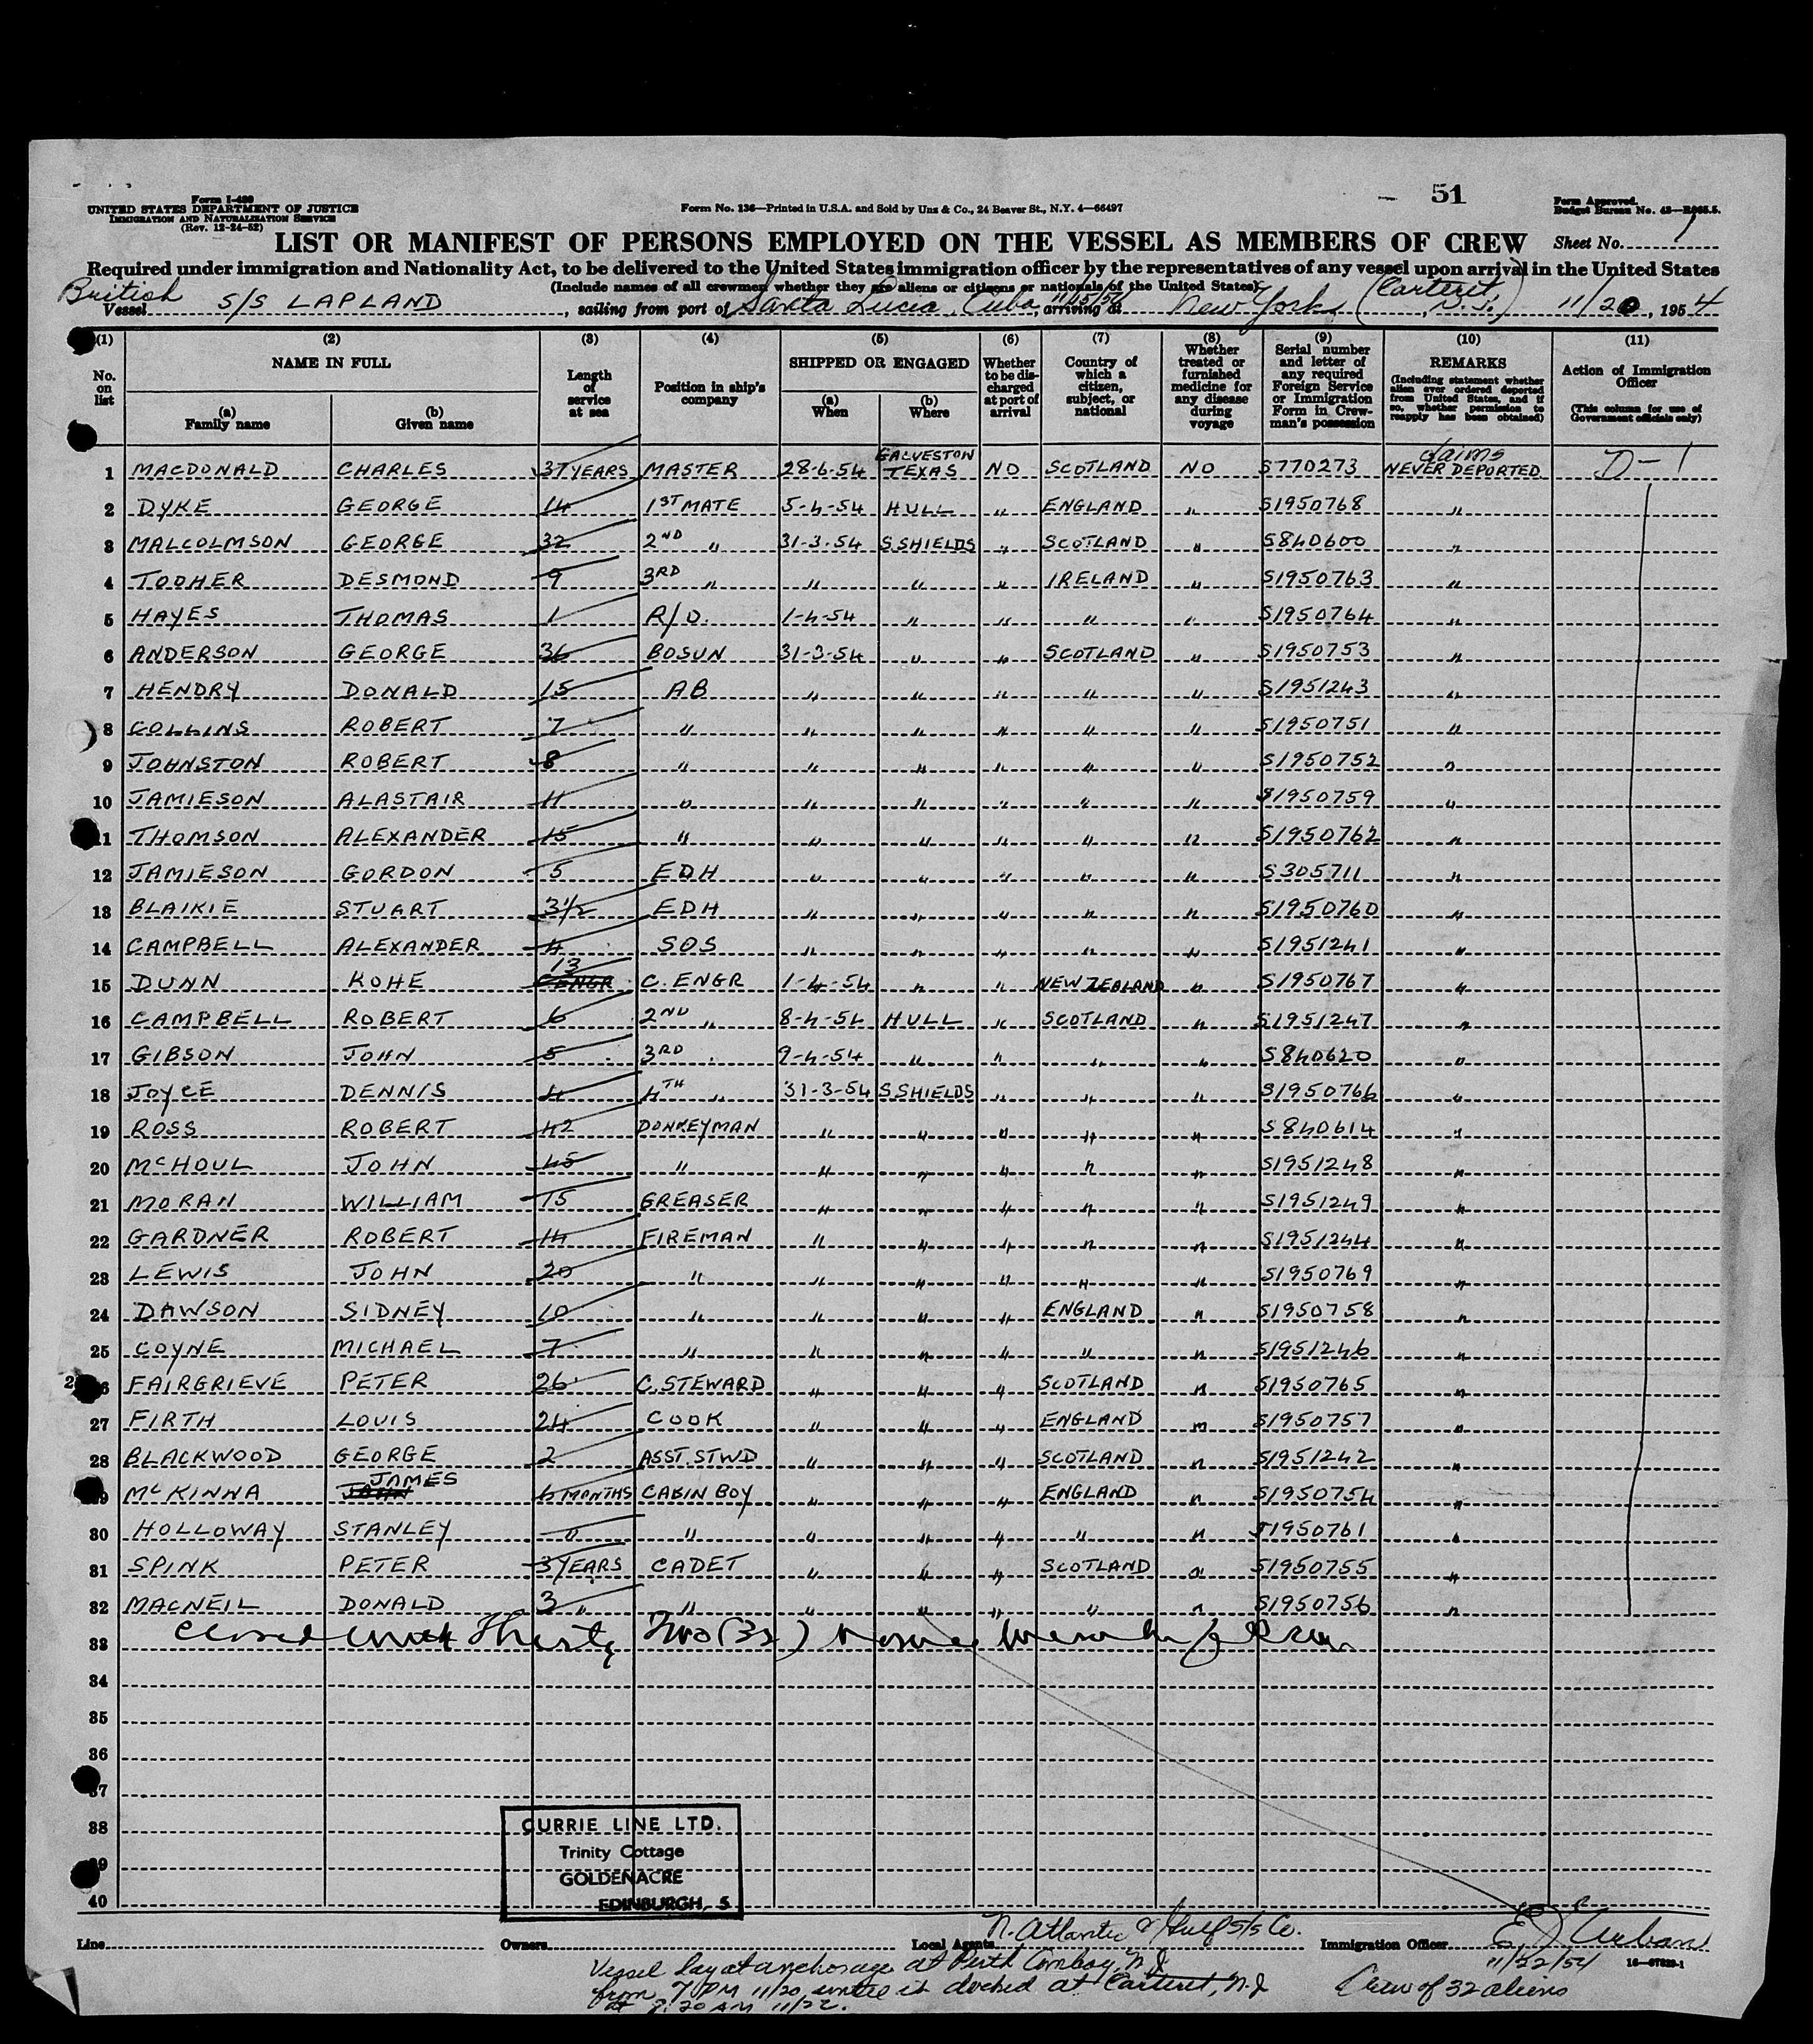 51
Form I-489
UNITED STATES DEPARTMENT OF JUSTICE
IMMIGRATION AND NATURALIZATION SERVICE
(Rev. 12-24-52)
Form No. 136—Printed in U.S.A. and Sold by Unz & Co., 24 Beaver St., N.Y. 4—66497
Form Approved.
Budget Bureau No. 43—R065.5.
LIST OR MANIFEST OF PERSONS EMPLOYED ON THE VESSEL AS MEMBERS OF CREW
Sheet No. 1
Required under immigration and Nationality Act, to be delivered to the United States immigration officer by the representatives of any vessel upon arrival in the United States
(Include names of all crewmen whether they are aliens or citizens or nationals of the United States)
British
Vessel S/S LAPLAND, sailing from port of Santa Lucia, Cuba, 11/15/54 arriving at New York (Carteret, N.J.) 11/20, 1954
(1) (2) (3) (4) (5) (6) (7) (8) (9) (10) (11)
No. on list
NAME IN FULL
(a) Family name
(b) Given name
Length of service at sea
Position in ship's company
SHIPPED OR ENGAGED
(a) When
(b) Where
Whether to be discharged at port of arrival
Country of which a citizen, subject, or national
Whether treated or furnished medicine for any disease during voyage
Serial number and letter of any required Foreign Service or Immigration Form in Crewman's possession
REMARKS
(Including statement whether alien ever ordered deported from United States, and if so, whether permission to reapply has been obtained)
Action of Immigration Officer
(This column for use of Government officials only)
1 MACDONALD CHARLES 37 YEARS MASTER 28-6-54 GALVESTON TEXAS NO SCOTLAND NO S770273 claims NEVER DEPORTED D-1
2 DYKE GEORGE 14 1ST MATE 5-4-54 HULL " ENGLAND " S1950768 "
3 MALCOLMSON GEORGE 32 2ND " 31-3-54 S SHIELDS " SCOTLAND " S840600 "
4 TOOHER DESMOND 9 3RD " " " " IRELAND " S1950763 "
5 HAYES THOMAS 1 R/O. 1-4-54 " " " " S1950764 "
6 ANDERSON GEORGE 36 BOSUN 31-3-54 " " SCOTLAND " S1950753 "
7 HENDRY DONALD 15 AB " " " " " S1951243 "
8 COLLINS ROBERT 7 " " " " " " S1950751 "
9 JOHNSTON ROBERT 8 " " " " " " S1950752 "
10 JAMIESON ALASTAIR 11 " " " " " " S1950759 "
11 THOMSON ALEXANDER 15 " " " " " " S1950762 "
12 JAMIESON GORDON 5 EDH " " " " " S305711 "
13 BLAIKIE STUART 3½ EDH " " " " " S1950760 "
14 CAMPBELL ALEXANDER 4 SOS " " " " " S1951241 "
15 DUNN KOHE C.ENGR 13 C. ENGR 1-4-54 " " NEW ZEALAND " S1950767 "
16 CAMPBELL ROBERT 6 2ND " 8-4-54 HULL " SCOTLAND " S1951247 "
17 GIBSON JOHN 5 3RD " 9-4-54 " " " " S840620 "
18 JOYCE DENNIS 4 4TH " 31-3-54 S SHIELDS " " " S1950766 "
19 ROSS ROBERT 42 DONKEYMAN " " " " " S840614 "
20 McHOUL JOHN 45 " " " " " " S1951248 "
21 MORAN WILLIAM 15 GREASER " " " " " S1951249 "
22 GARDNER ROBERT 14 FIREMAN " " " " " S1951244 "
23 LEWIS JOHN 20 " " " " " " S1950769 "
24 DAWSON SIDNEY 10 " " " " ENGLAND " S1950758 "
25 COYNE MICHAEL 7 " " " " " " S1951246 "
26 FAIRGRIEVE PETER 26 C. STEWARD " " " SCOTLAND " S1950765 "
27 FIRTH LOUIS 24 COOK " " " ENGLAND " S1950757 "
28 BLACKWOOD GEORGE 2 ASST. STWD " " " SCOTLAND " S1951242 "
29 McKINNA JOHN JAMES 6 MONTHS CABIN BOY " " " ENGLAND " S1950754 "
30 HOLLOWAY STANLEY " " " " " " " S1950761 "
31 SPINK PETER 3 YEARS CADET " " " SCOTLAND " S1950755 "
32 MACNEIL DONALD 3 " " " " " " " S1950756 "
33 Closed with Thirty Two (32) names members of crew
34
35
36
37
38
39
40
CURRIE LINE LTD.
Trinity Cottage
GOLDENACRE
EDINBURGH, 5
Line Owners Local Agents N. Atlantic & Gulf S/S Co. Immigration Officer E J Urban
11/22/54 16—67829-1
Vessel lay at anchorage at Perth Amboy, N.J.
from 7 PM 11/20, until it docked at Carteret, N.J Crew of 32 aliens
at 7.20 AM 11/22.